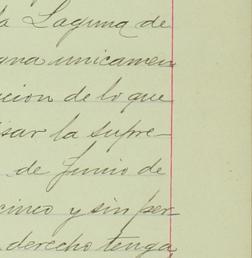 la Laguna de
gna unicamen
cion de lo que
isar la supre-
de Junio de
cinco y sin per-
derecho tenga